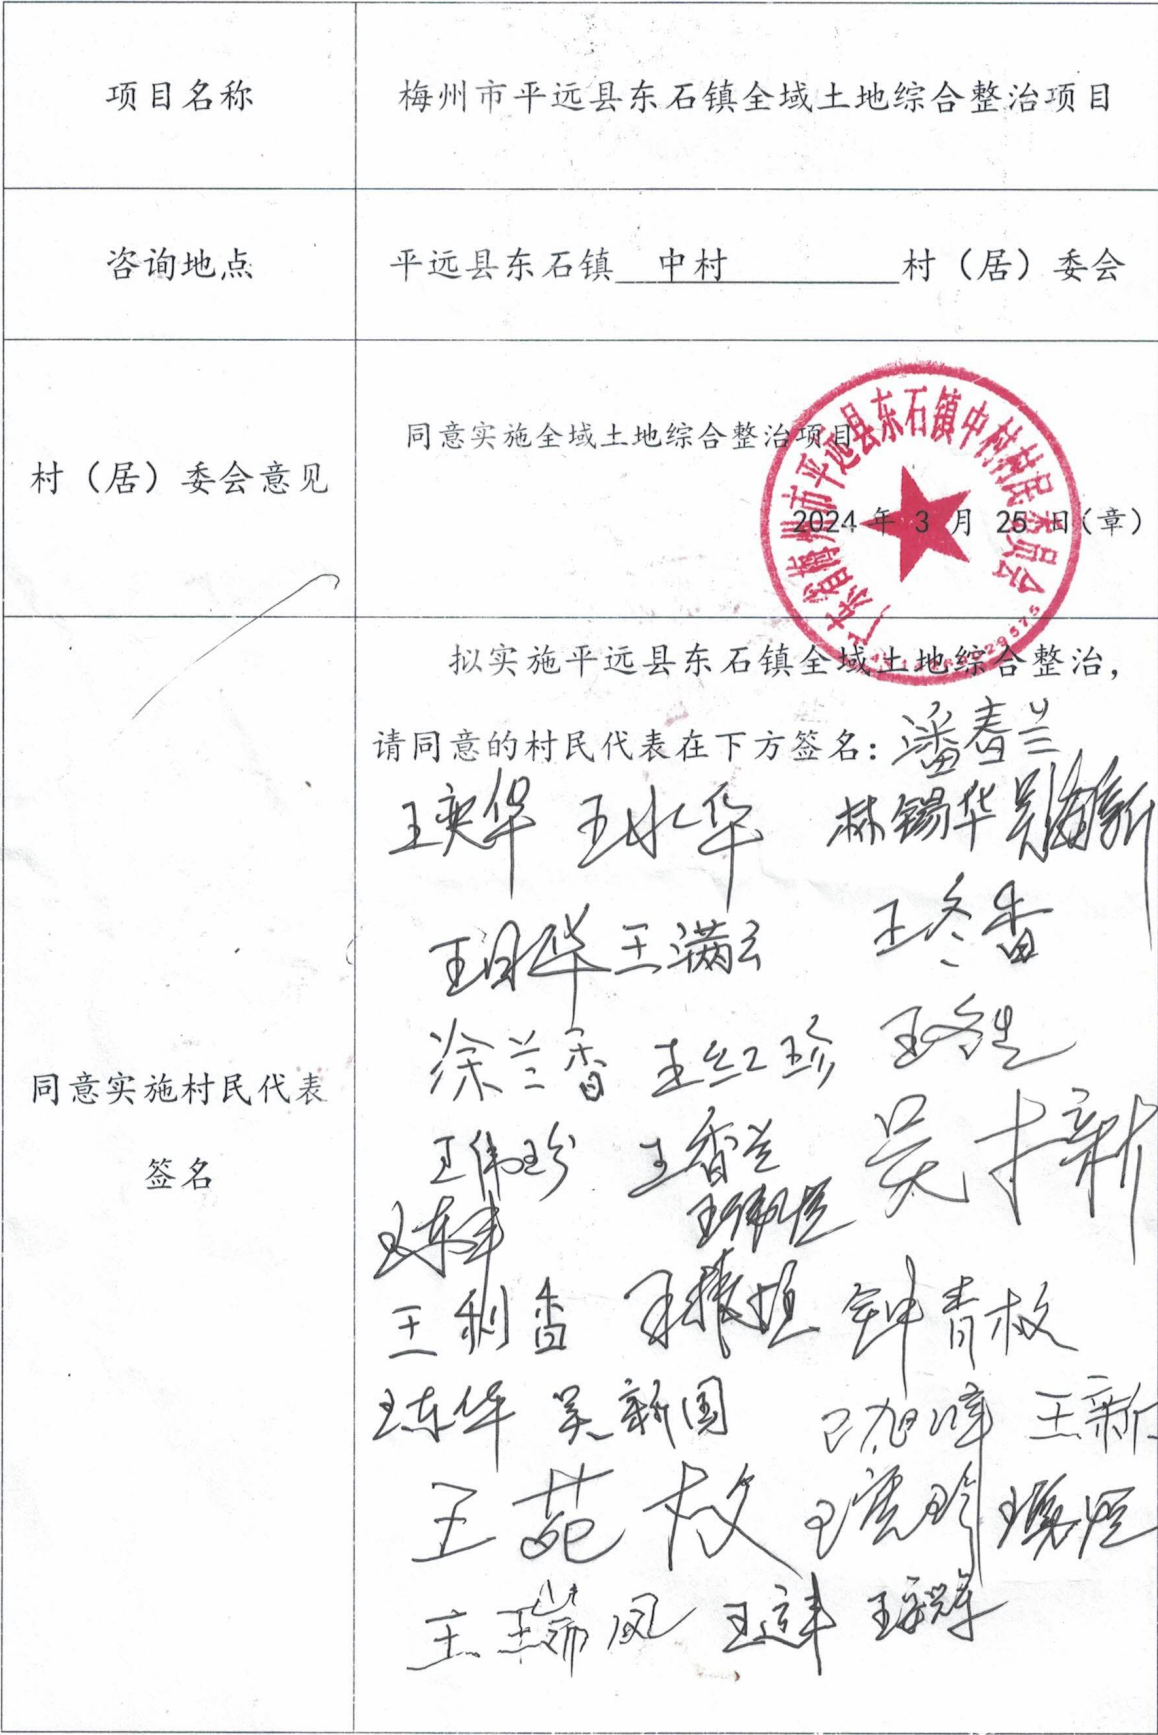 项目名称
梅州市平远县东石镇全域土地综合整治项目
咨询地点
平远县东石镇 中村 村（居）委会
村（居）委会意见
同意实施全域土地综合整治项目
2024 年 3 月 25 日(章)
广东省梅州市平远县东石镇中村村民委员会
同意实施村民代表
签名
拟实施平远县东石镇全域土地综合整治，
请同意的村民代表在下方签名：潘春兰
王奕华 王水华 林锡华
王满云 王冬香
涂兰香 王红珍
王伟珍 王香兰 吴才新
王东丰
王利香 钟青枚
王东华 吴新国 王旭峰 王新
王苑枚
王瑞凤